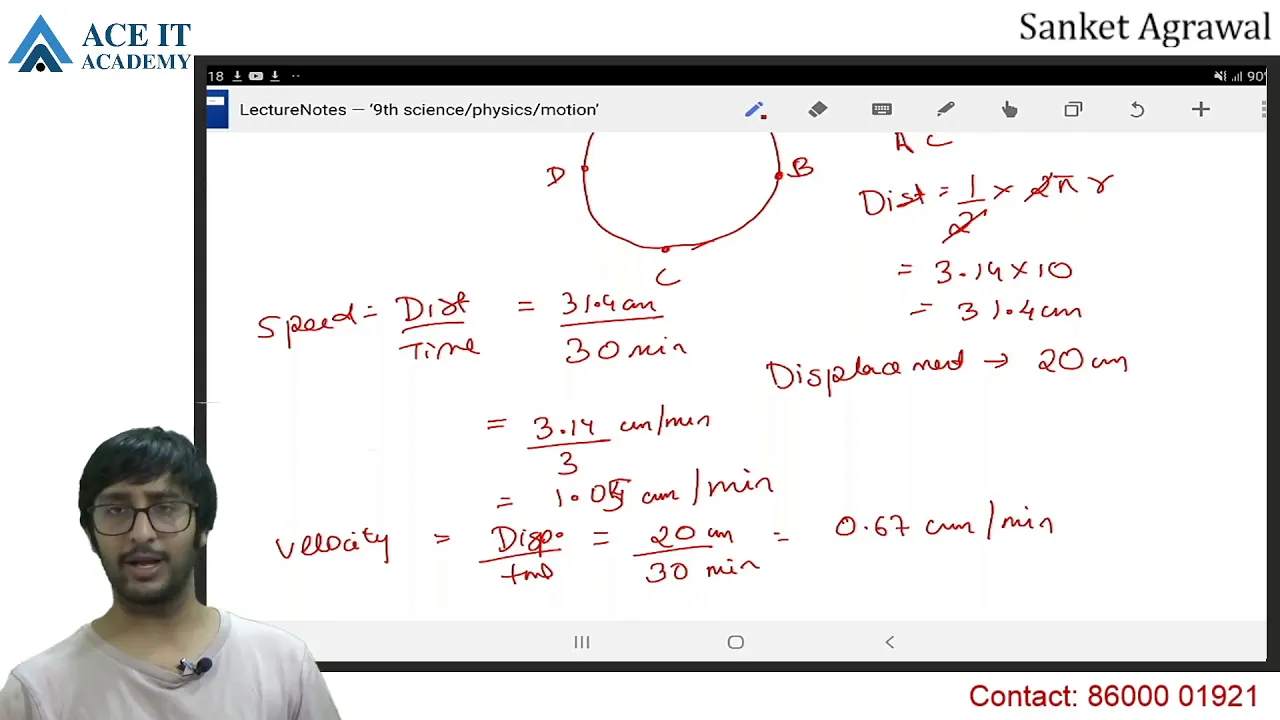 ACE IT
ACADEMY
Sanket Agrawal
18
90%
LectureNotes – '9th science/physics/motion'
A C
D
B
C
Dist = 1/2 × 2πr
= 3.14×10
= 31.4cm
Speed = Dist/Time = 31.4cm/30 min
Displacement → 20cm
= 3.14/3 cm/min
= 1.05 cm/min
Velocity = Disp./time = 20cm/30 min = 0.67 cm/min
Contact: 86000 01921